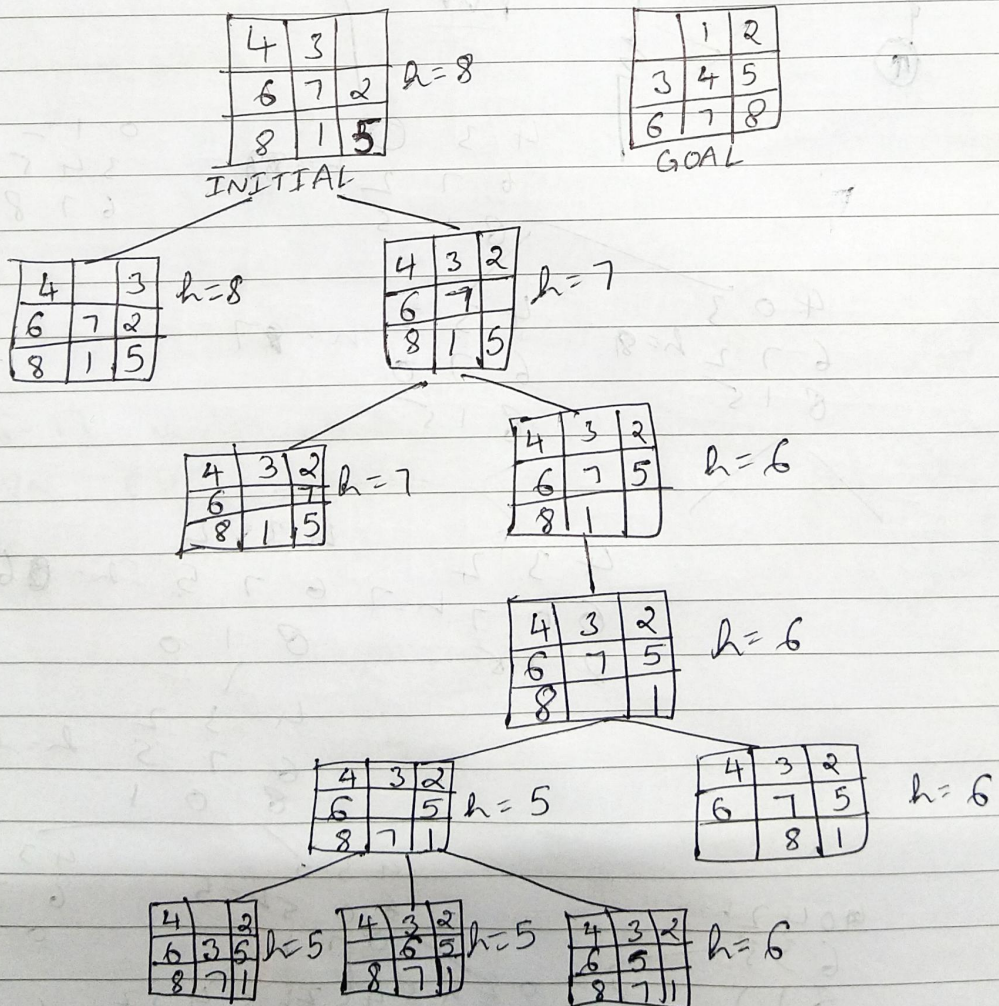 4 3
6 7 2
8 1 5
h=8
INITIAL
1 2
3 4 5
6 7 8
GOAL
4 3
6 7 2
8 1 5
h=8
4 3 2
6 7
8 1 5
h=7
4 3 2
6 7
8 1 5
h=7
4 3 2
6 7 5
8 1
h=6
4 3 2
6 7 5
8 1
h=6
4 3 2
6 5
8 7 1
h=5
4 3 2
6 7 5
8 1
h=6
4 2
6 3 5
8 7 1
h=5
4 3 2
6 5
8 7 1
h=5
4 3 2
6 5
8 7 1
h=6